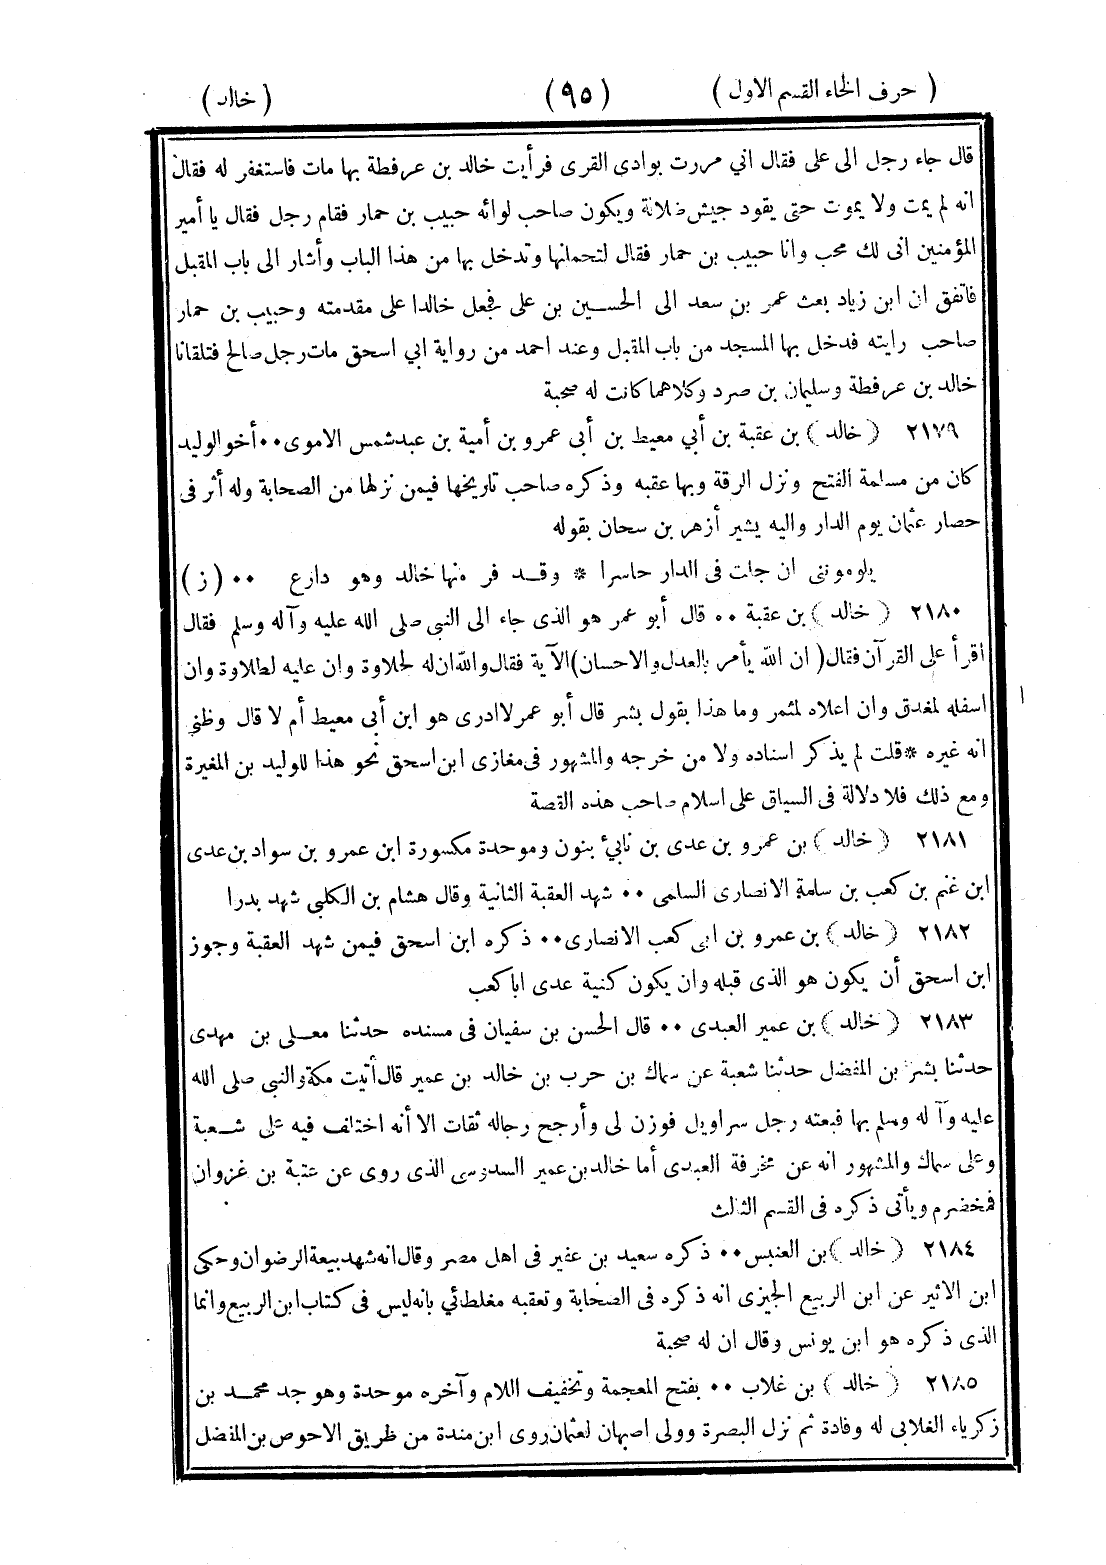 ( حرف الخاء القسم الاول )
( ٩٥ )
( خالد )
قال جاء رجل الى على فقال اني مررت بوادى القرى فرأيت خالد بن عرفطة بها مات فاستغفر له فقال
انه لم يمت ولا يموت حتى يقود جيش ضلالة ويكون صاحب لوائه حبيب بن حمار فقام رجل فقال يا أمير
المؤمنين انى لك محب وانا حبيب بن حمار فقال لتحملنها وتدخل بها من هذا الباب وأشار الى باب المقبل
فاتفق ان ابن زياد بعث عمر بن سعد الى الحسين بن على فجعل خالدا على مقدمته وحبيب بن حمار
صاحب رايته فدخل بها المسجد من باب المقبل وعند احمد من رواية ابي اسحق مات رجل صالح فتلقانا
خالد بن عرفطة وسليمان بن صرد وكلاهما كانت له صحبة
٢١٧٩ ( خالد ) بن عقبة بن أبي معيط بن أبى عمرو بن أمية بن عبد شمس الاموى ٠٠ أخو الوليد
كان من مسلمة الفتح ونزل الرقة وبها عقبه وذكره صاحب تاريخها فيمن نزلها من الصحابة وله أثر فى
حصار عثمان يوم الدار واليه يشير أزهر بن سحان بقوله
يلوموننى ان جلت فى الدار حاسرا * وقد فر منها خالد وهو دارع ٠٠ ( ز )
٢١٨٠ ( خالد ) بن عقبة ٠٠ قال أبو عمر هو الذى جاء الى النبى صلى الله عليه وآله وسلم فقال
اقرأ على القرآن فقال ( ان الله يأمر بالعدل والاحسان ) الآية فقال والله ان له لحلاوة وان عليه لطلاوة وان
اسفله لمغدق وان اعلاه لمثمر وما هذا بقول بشر قال أبو عمر لا ادرى هو ابن أبى معيط أم لا قال وظني
انه غيره * قلت لم يذكر اسناده ولا من خرجه والمشهور فى مغازى ابن اسحق نحو هذا للوليد بن المغيرة
ومع ذلك فلا دلالة فى السياق على اسلام صاحب هذه القصة
٢١٨١ ( خالد ) بن عمرو بن عدى بن نابئ بنون وموحدة مكسورة ابن عمرو بن سواد بن عدى
ابن غنم بن كعب بن سلمة الانصارى السلمى ٠٠ شهد العقبة الثانية وقال هشام بن الكلبى شهد بدرا
٢١٨٢ ( خالد ) بن عمرو بن ابى كعب الانصارى ٠٠ ذكره ابن اسحق فيمن شهد العقبة وجوز
ابن اسحق أن يكون هو الذى قبله وان يكون كنية عدى ابا كعب
٢١٨٣ ( خالد ) بن عمير العبدى ٠٠ قال الحسن بن سفيان فى مسنده حدثنا معلى بن مهدى
حدثنا بشر بن المفضل حدثنا شعبة عن سماك بن حرب بن خالد بن عمير قال أتيت مكة والنبى صلى الله
عليه وآله وسلم بها فبعته رجل سراويل فوزن لى وأرجح رجاله ثقات الا أنه اختلف فيه على شعبة
وعلى سماك والمشهور انه عن مخرفة العبدى أما خالد بن عمير السدوسى الذى روى عن عتبة بن غزوان
فمخضرم ويأتى ذكره فى القسم الثالث
٢١٨٤ ( خالد ) بن العنبس ٠٠ ذكره سعيد بن عفير فى اهل مصر وقال انه شهد بيعة الرضوان وحكى
ابن الاثير عن ابن الربيع الجيزى انه ذكره فى الصحابة وتعقبه مغلطائي بانه ليس فى كتاب ابن الربيع وانما
الذى ذكره هو ابن يونس وقال ان له صحبة
٢١٨٥ ( خالد ) بن غلاب ٠٠ بفتح المعجمة وتخفيف اللام وآخره موحدة وهو جد محمد بن
زكرياء الغلابي له وفادة ثم نزل البصرة وولى اصبهان لعثمان روى ابن مندة من طريق الاحوص بن المفضل